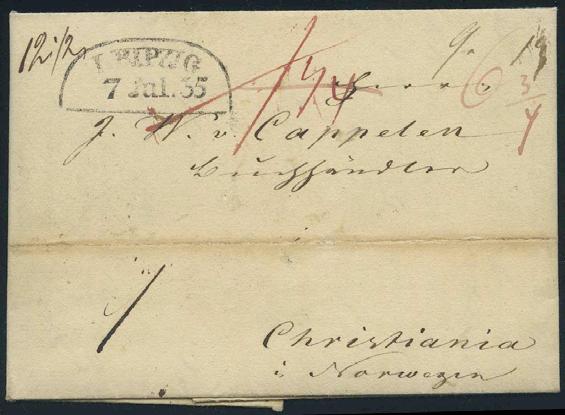 12 1/2
LEIPZIG
7 Jul. 35
Herrn
J. W. v. Cappelen
Buchhändler
in
Christiania
in Norwegen